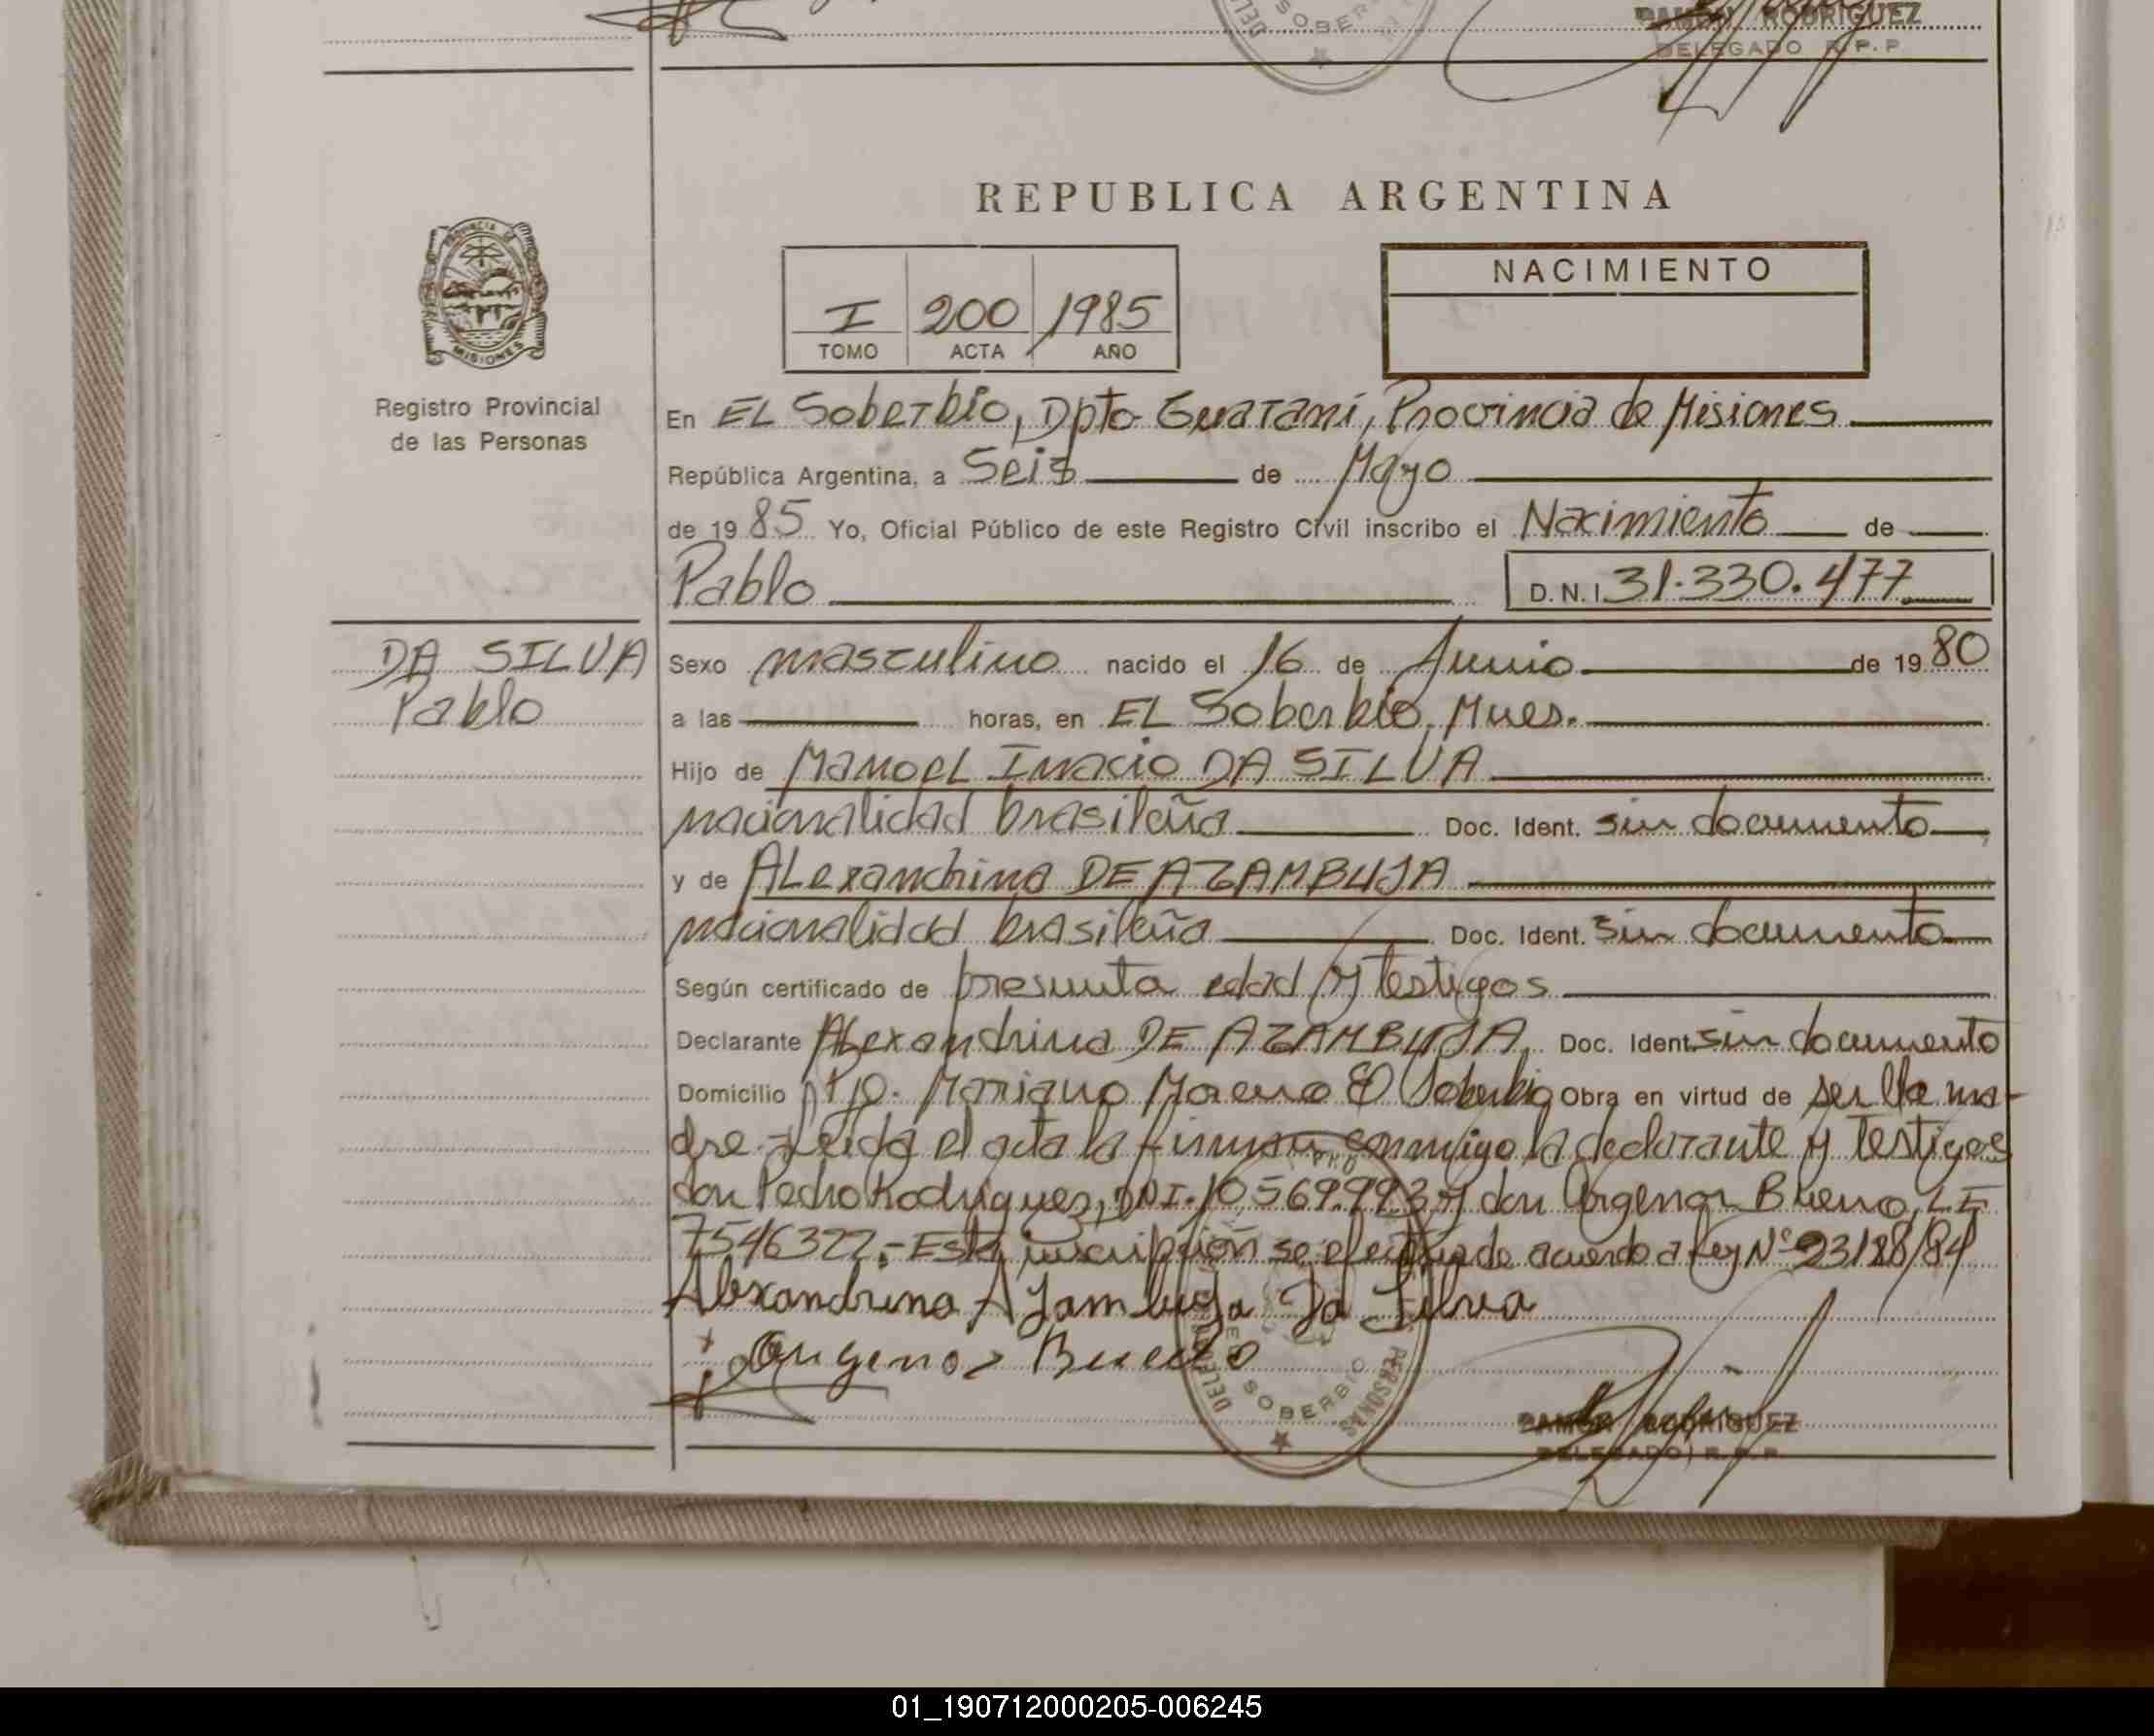 RAMON RODRIGUEZ
SOBER
DELEGADO R.P.P
REPUBLICA ARGENTINA
PROVINCIA DE
MISIONES
Registro Provincial
de las Personas
I 200 1985
TOMO ACTA AÑO
NACIMIENTO
En EL Soberbio, Dpto Guaraní, Provincia de Misiones
República Argentina, a Seis de Mayo
de 1985 Yo, Oficial Público de este Registro Civil inscribo el Nacimiento de
Pablo D.N.I. 31.330.477
DA SILVA
Pablo
Sexo masculino nacido el 16 de Junio de 1980
a las horas, en EL Soberbio, Mnes.
Hijo de Manoel Inacio DA SILVA
nacionalidad brasileña Doc. Ident. sin documento
y de ALexandrina DE AZAMBUJA
nacionalidad brasileña Doc. Ident. sin documento
Según certificado de presunta edad y testigos
Declarante ALexandrina DE AZAMBUJA, Doc. Ident. sin documento
Domicilio Pje. Mariano Moreno El Soberbio Obra en virtud de ser la ma-
dre. Leida el acta la firman conmigo la declarante y testigos
don Pedro Rodriguez, DNI. 10.569.993 y don Argenor Bueno, LE
7546322.- Esta inscripción se efectua de acuerdo a Ley Nº 23128/84
Alexandrina Azambuja Da Silva
Argenor Bueno
SOBERBIO
PERSONAS
RAMON RODRIGUEZ
DELEGADO R.P.P
01_190712000205-006245